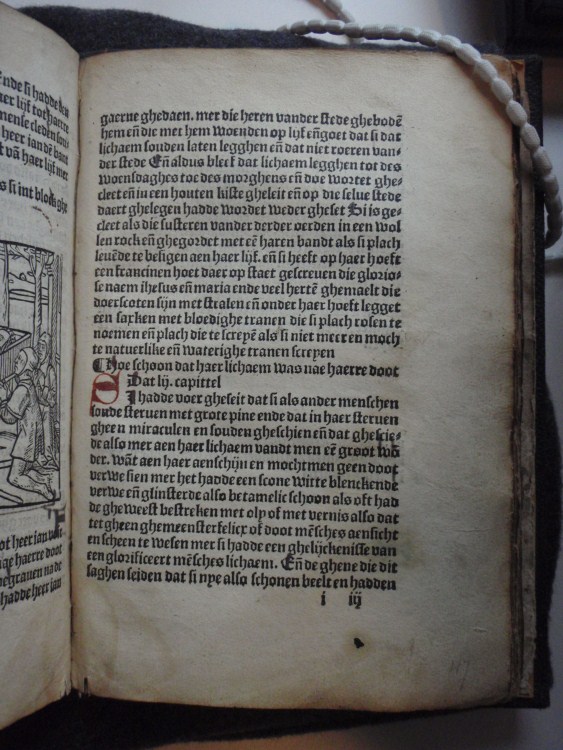 nde si hadde den
er lijf tot haerre
mense cleden sou
heer ian dē van
t vā haer lijf met
s si int blocks ghe
ot heer ian von
ge haerre doot
egrauen na de
hadde heer ian
gaerue ghedaen. mer die heren vander stede ghebodē
hem eñ die met hem woenden op lijf eñ goet dat si dat
lichaem souden laten legghen eñ dat niet roeren van-
der stede Eñ aldus bleef dat lichaem legghen tot des
woensdaghes toe des morghens eñ doe wortet ghe-
cleet eñ in een houten kiste gheleit eñ op die selue stede
daert ghelegen hadde wordet weder gheset Si is ge-
cleet als die susteren vander derder oerden in een wol
len rock eñ ghegordet met eē haren bandt als si plach
leuēde te besigen aen haer lijf. eñ si heeft op haer hoeft
een francinen hoet daer op staet gescreuen die glorio-
se naem ihesus eñ maria ende veel hertē ghemaelt die
doerscoten sijn met stralen eñ onder haer hoeft legget
een sacken met bloedighe tranen die si plach rosen te
noemen eñ plach die te screyē als si niet meer en moch
te natuerlike eñ waterighe tranen screyen
¶ Hoe schoon dat haer lichaem was nae haerre doot
Dat lij. capittel
SI hadde voer gheseit dat si als ander menschen
soude steruen met grote pine ende dat in haer steruen
gheen miraculen en souden gheschien eñ dat ghescie-
de also mer aen haer lichaem vandt men eē groot wō
der. wāt aen haer aenschijn en mochtmen geen doot
verwe sien mer het hadde een scone witte blenckende
verwe eñ glinsterde also betamelic schoon als oft had
de gheweest bestreken met oly of met vernis also dat
tet gheen ghemeen sterfelicx of doot mēsches aensicht
en scheen te wesen mer si hadde een ghelijckenisse van
een glorificeert mēsches lichaem. Eñ de ghene die dit
saghen seiden dat si nye also schonen beelt en hadden
i iij
47